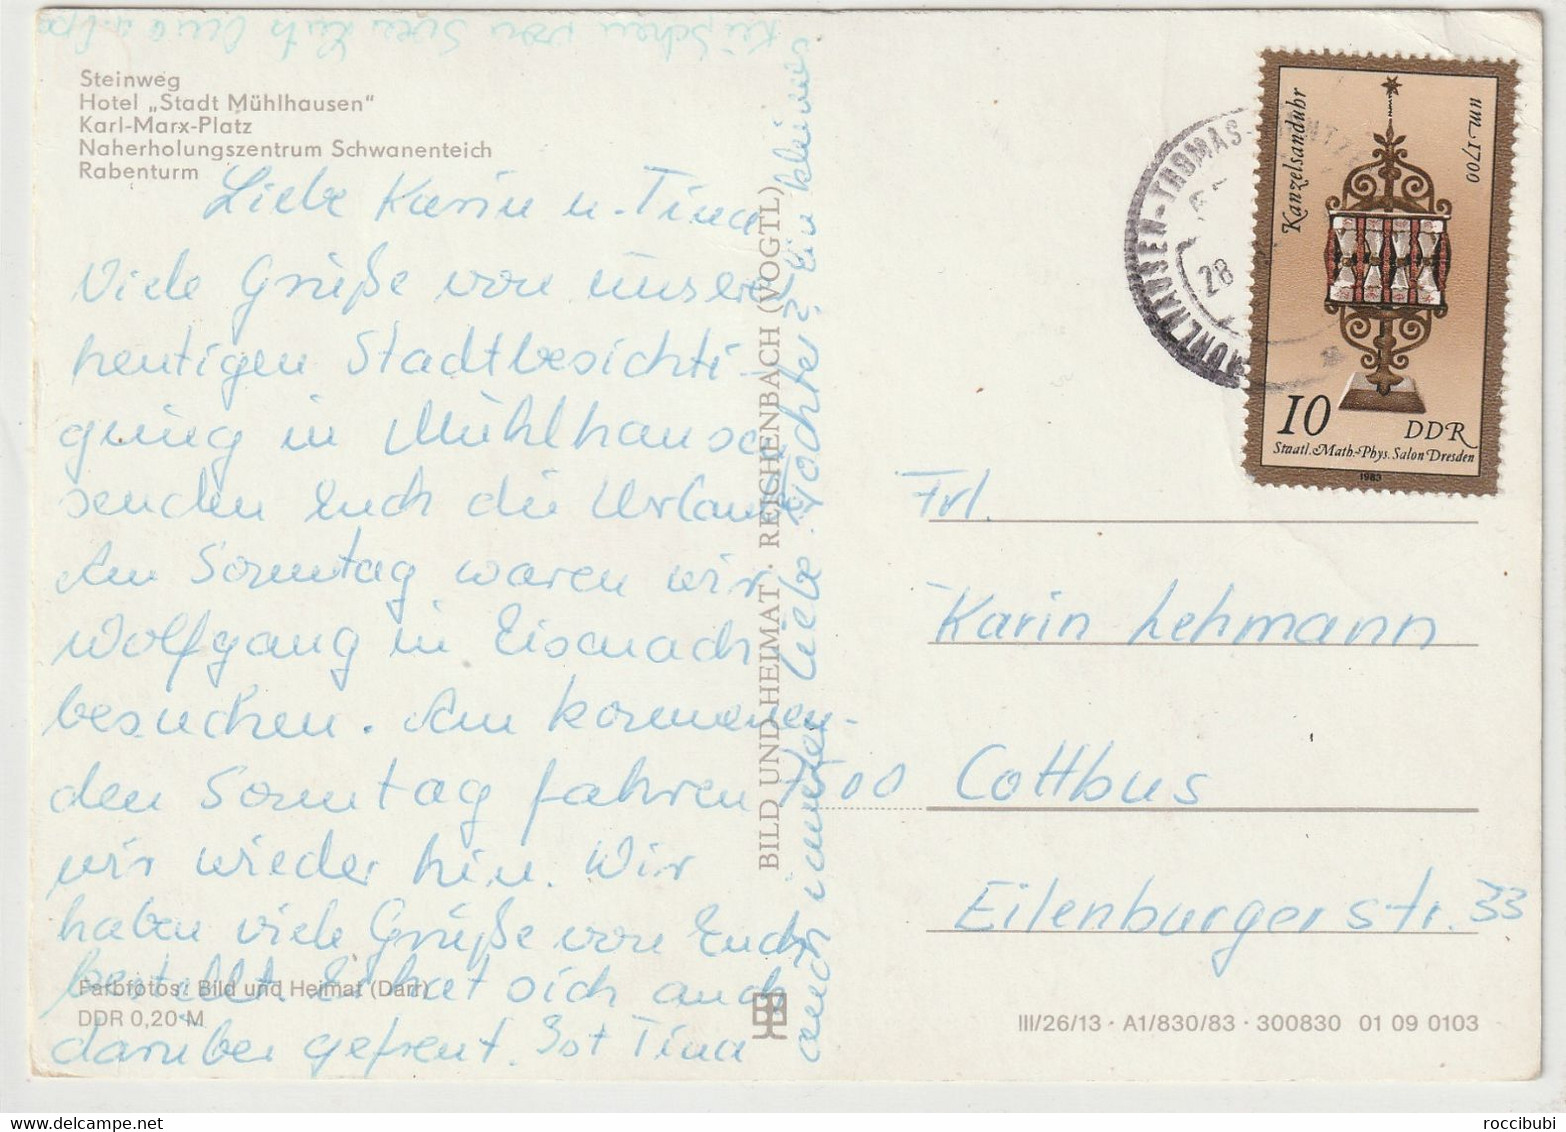 Steinweg
Hotel „Stadt Mühlhausen"
Karl-Marx-Platz
Naherholungszentrum Schwanenteich
Rabenturm
Liebe Karin u. Tina
Viele Grüße von unserer
heutigen Stadtbesichti-
gung in Mühlhausen
senden Euch die Urlauber
Am Sonntag waren wir
Wolfgang in Eisenach
besuchen. Am kommen-
den Sonntag fahren
wir wieder hin. Wir
haben viele Grüße von Euch
bestellt. Er hat sich auch
darüber gefreut. Ist Tina
auch immer liebe Tochter? Ein kleines
Küßchen von
Farbfotos: Bild und Heimat (Darr)
DDR 0,20 M
BILD UND HEIMAT · REICHENBACH (VOGTL)
MÜHLHAUSEN-THOMAS-MÜNTZER
28
Kanzelsanduhr
um 1700
10
DDR
Staatl. Math.-Phys. Salon Dresden
1983
Frl.
Karin Lehmann
7500 Cottbus
Eilenburger str. 33
III/26/13 · A1/830/83 · 300830 01 09 0103
roccibubi